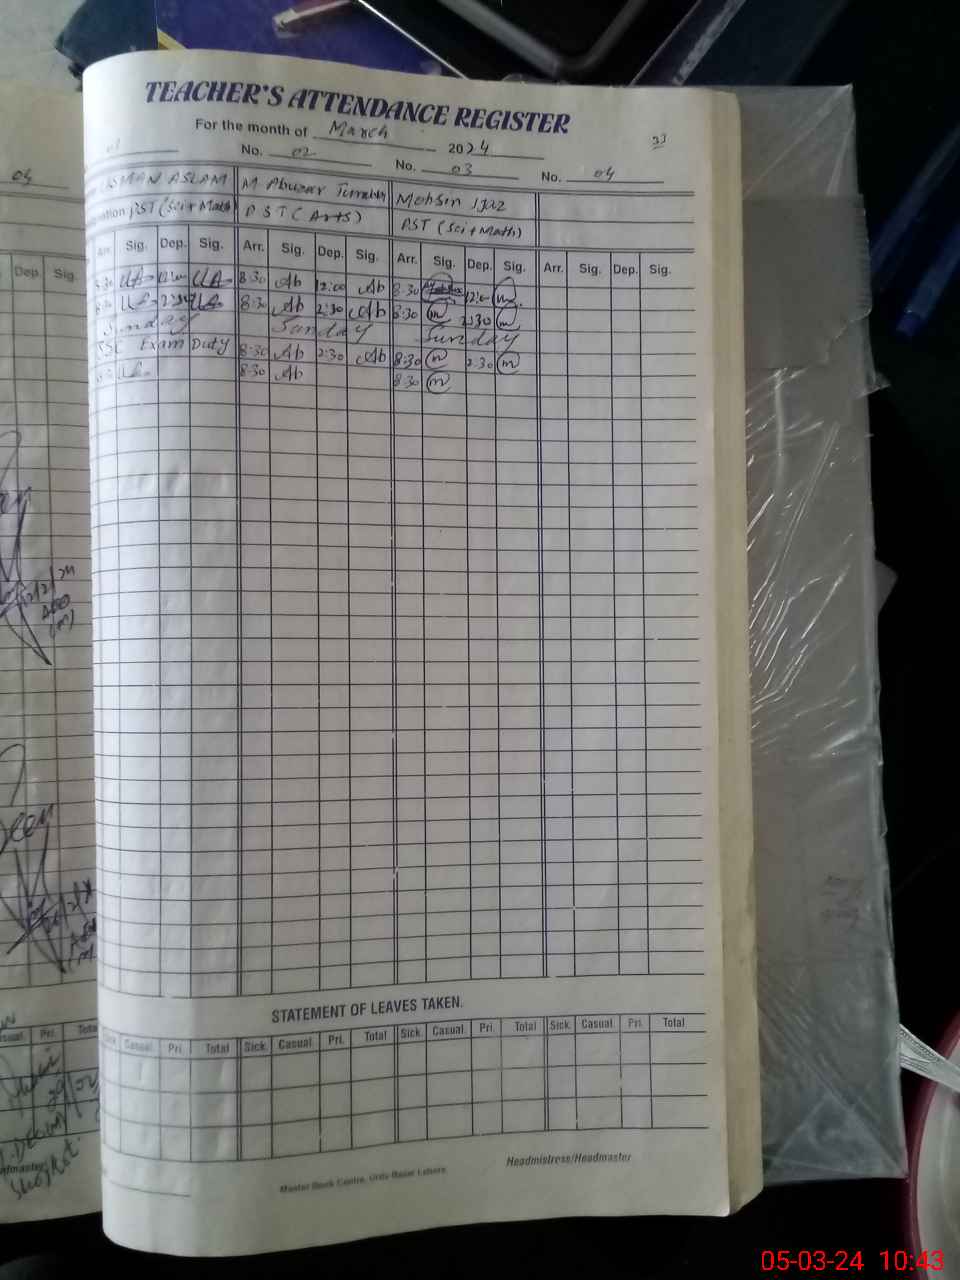 TEACHER'S ATTENDANCE REGISTER
For the month of March 2024
33
01 No. 02 No. 03 No. 04
04
USMAN ASLAM M Abuzar Mohsin Ijaz
PST (Sci+Math) PST (Arts) PST (Sci+Math)
Arr. Sig. Dep. Sig. Arr. Sig. Dep. Sig. Arr. Sig. Dep. Sig. Arr. Sig. Dep. Sig.
Dep. Sig.
8:30 UA 12:00 UA 8:30 Ab 12:00 Ab 8:30 12:00 m
8:30 UA 2:30 UA 8:30 Ab 2:30 Ab 8:30 m 2:30 m
Sunday Sunday Sunday
SSC Exam Duty 8:30 Ab 2:30 Ab 8:30 m 2:30 m
8:30 UA 8:30 Ab 8:30 m
STATEMENT OF LEAVES TAKEN.
Sick Casual Pri. Total Sick Casual Pri. Total Sick Casual Pri. Total Sick. Casual Pri. Total
Pri. Total
Headmistress/Headmaster
Master Book Centre, Urdu Bazar Lahore.
05-03-24 10:43